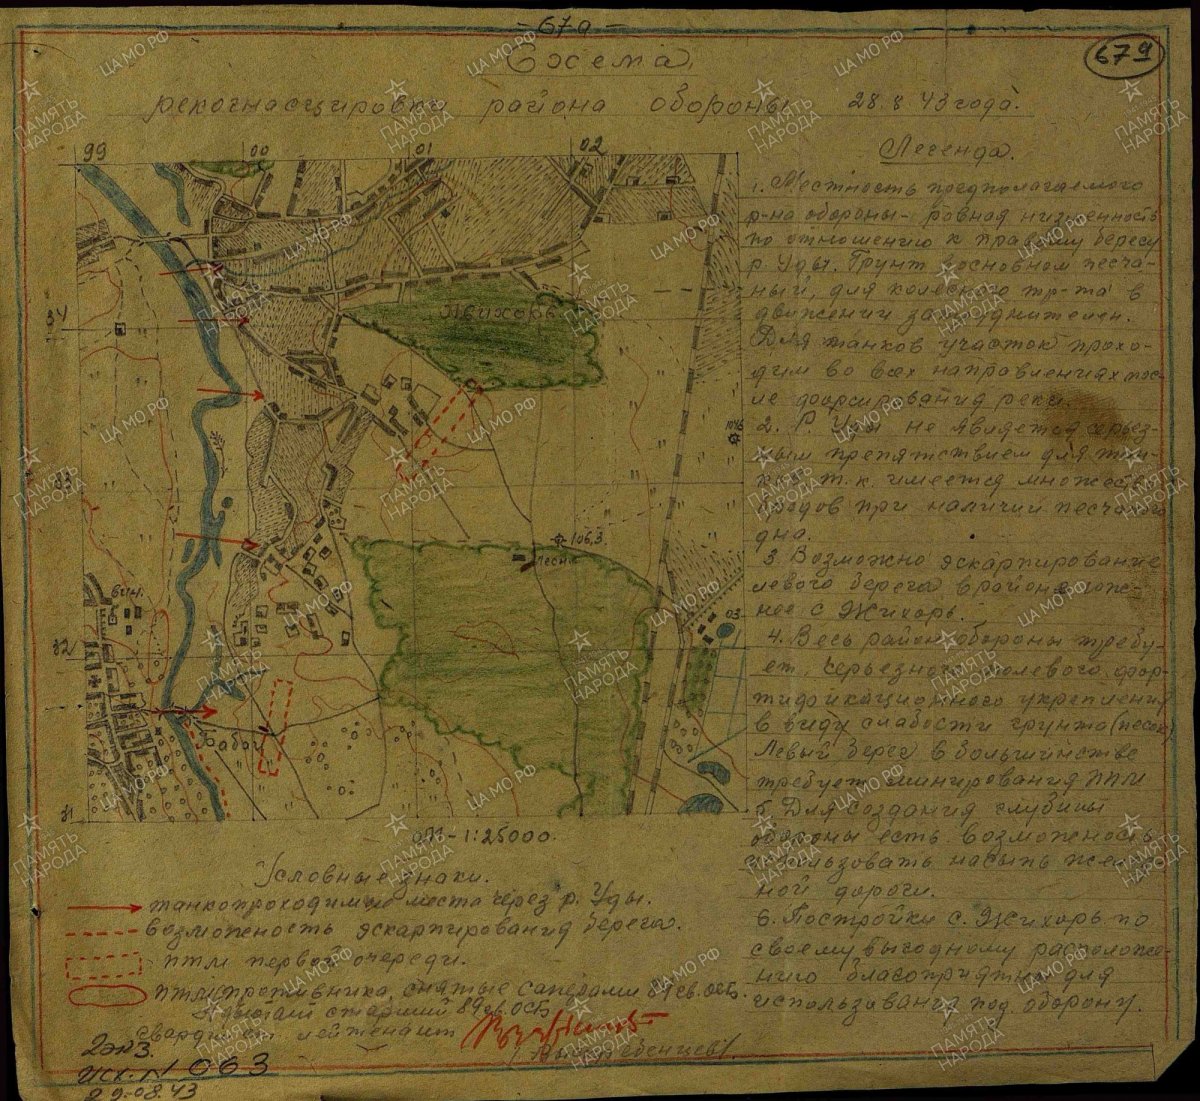 67а
679
Схема
рекогнасцировки района обороны 28.8.43 года.
99 00 01 02
Легенда.
1. Местность предполагаемого
р-на обороны - ровная низменность
по отношению к правому берегу
р. Уды. Грунт в основном песча-
ный, для колесного тр-та в
движении затруднителен.
Для танков участок прохо-
дим во всех направлениях пос-
ле форсирования реки.
2. Р. Уды не является серьез-
ным препятствием для тан-
ков, т.к. имеется множество
бродов при наличии песчаного
дна.
3 Возможно эскарпирование
левого берега в район
с Жихорь.
4. Весь район обороны требу-
ет серьезного полевого фор-
тификационного укрепления
в виду слабости грунта (песок)
Левый берег в большинстве
требует минирования ПТМ
5. Для создания глубины
обороны есть возможность
использовать насыпь жел
ной дороги.
6. Постройки с. Жихорь по
своему выгодному расположе-
нию благоприятны для
использования под оборону.
84
Жихорь
83
106,3
Лесн.
вин.
03
82
Бабаи
81
М-1:25000.
Условные знаки.
танкопроходимые места через р. Уды.
возможность эскарпирования берега.
ПТМ первой очереди.
ПТМ противника, снятые саперами 89 гв. осб.
старший 89 гв. осб
гвардии лейтенант
2 экз.
Исх. № 063
29.08.43
ЦА МО РФ
ПАМЯТЬ
НАРОДА